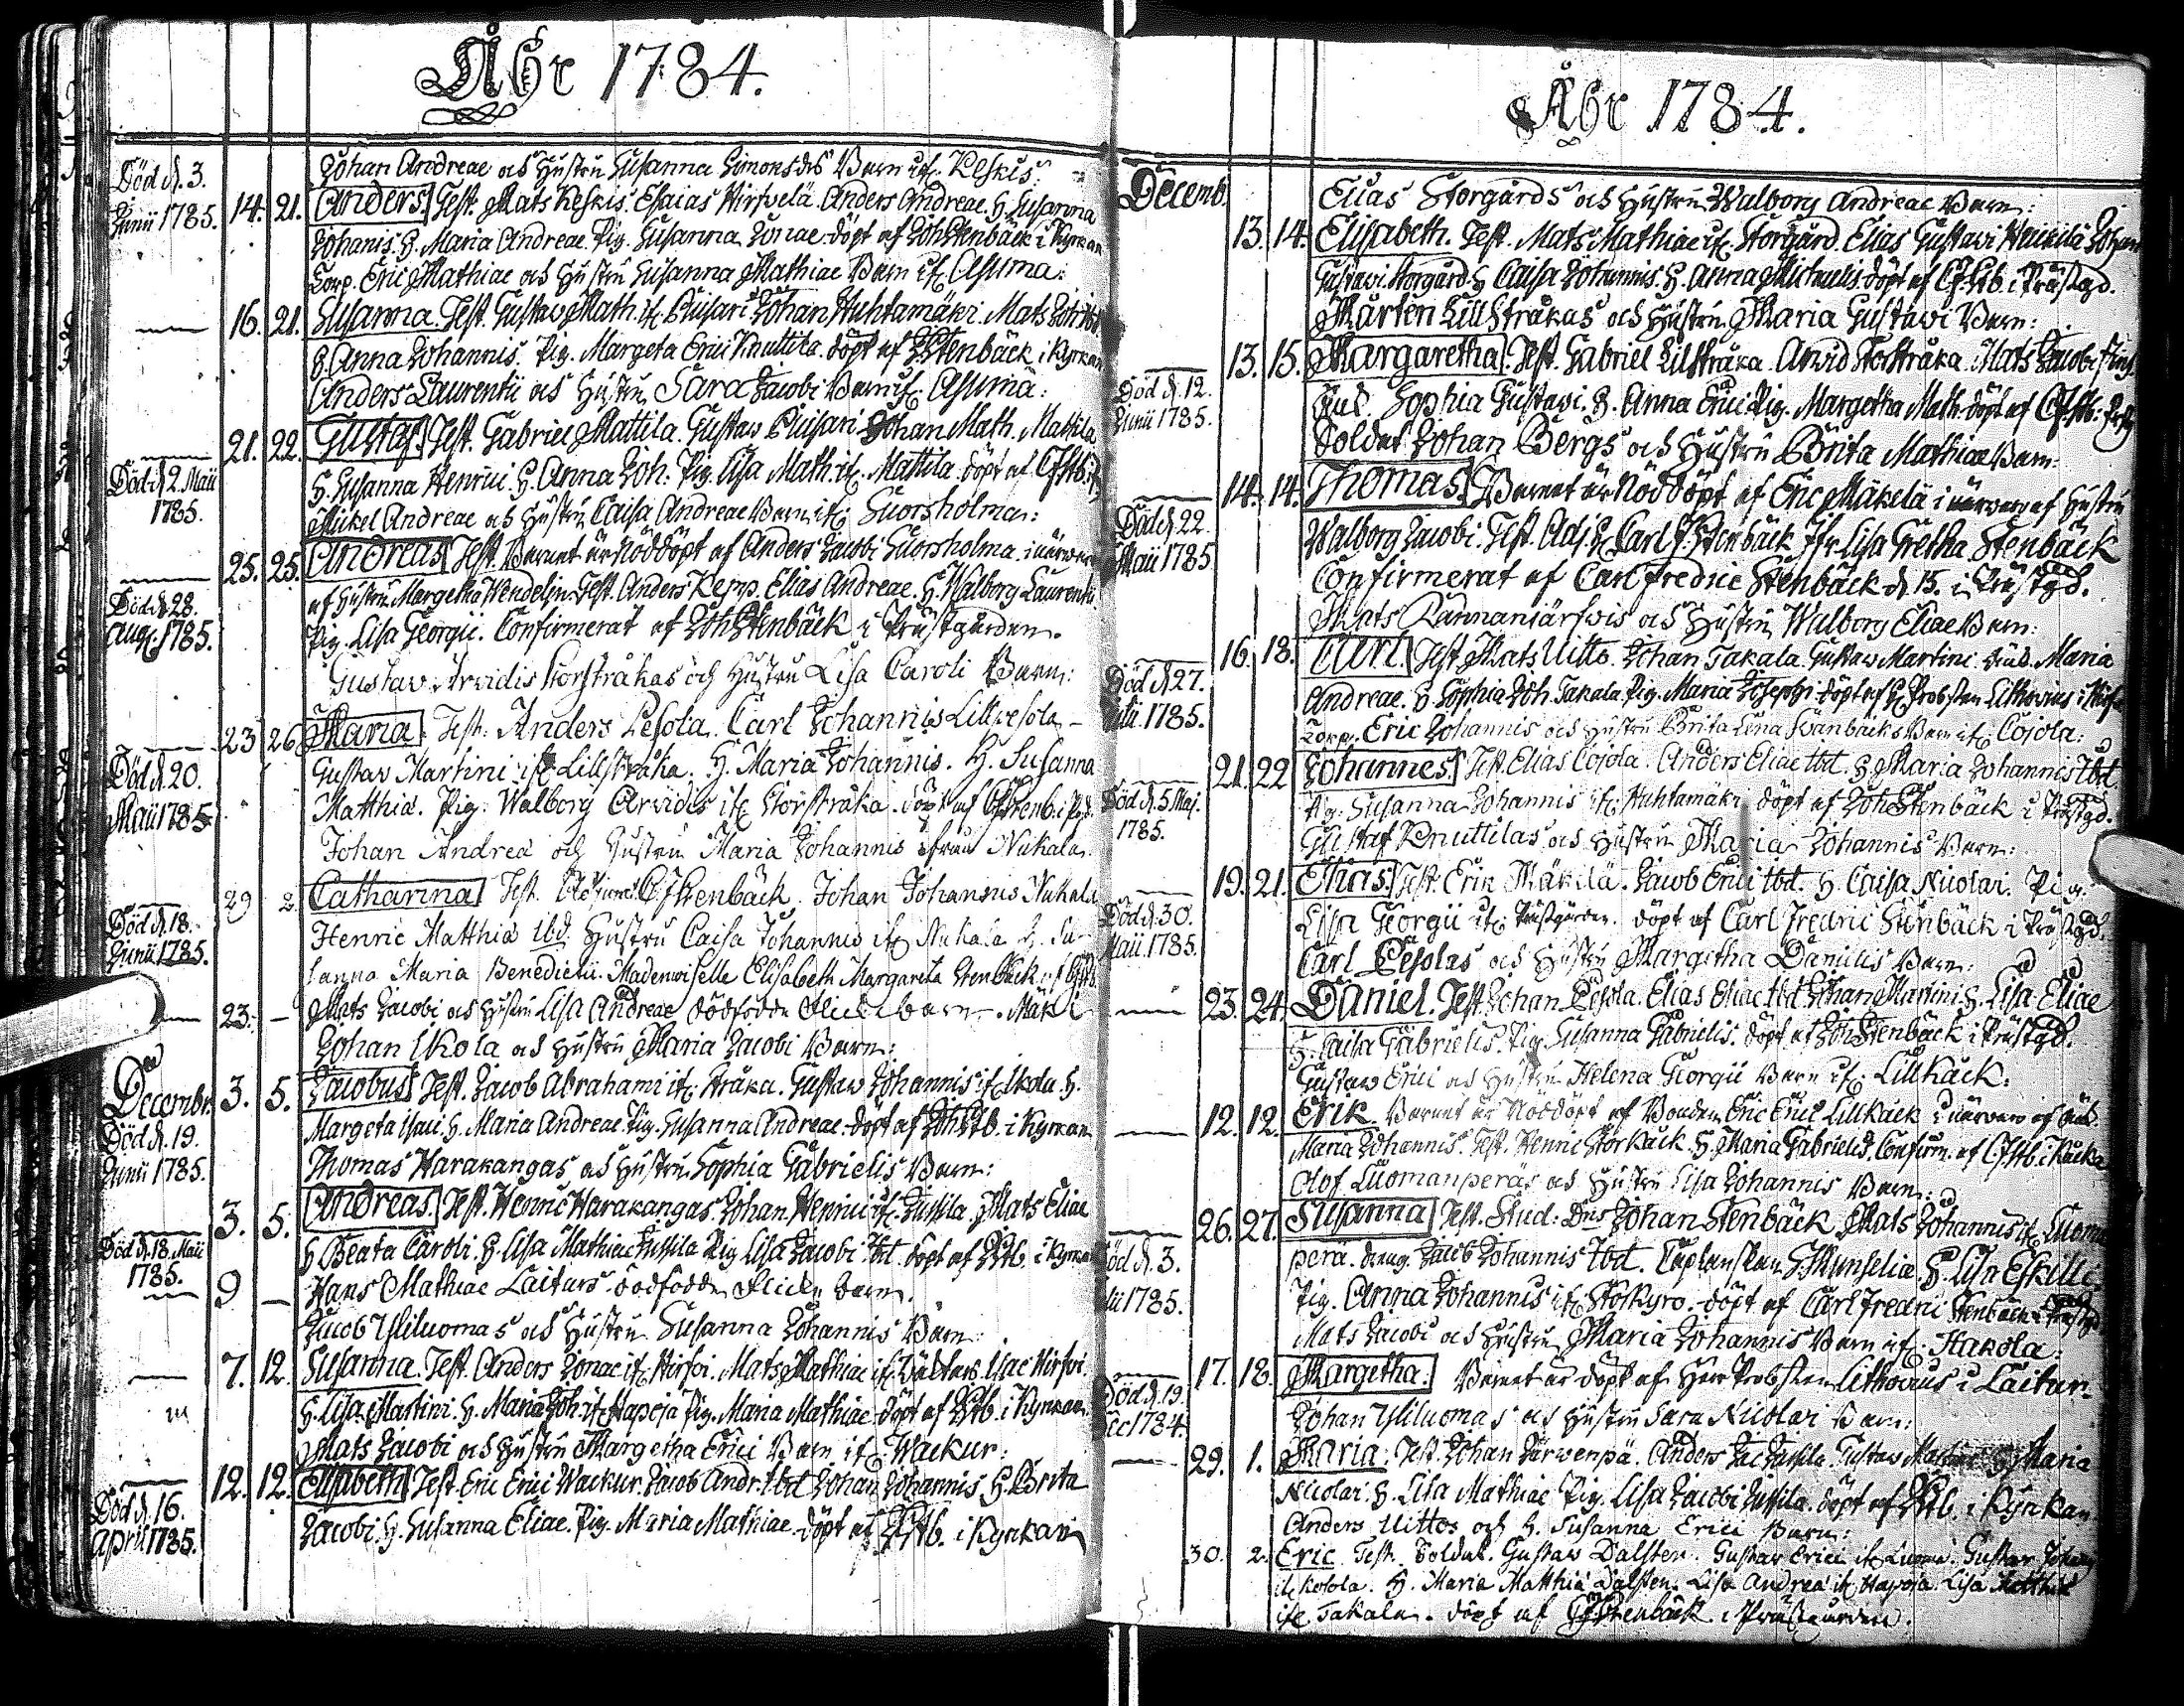 Åhr 1784.
Johan Andreae och Hustru Susanna Simonsdr Barn ifr. Keskis:
Död d. 3. Junii 1785. 14. 21. Anders. Test. Mats Keskis. Esaias Hirfvelä. Anders Andreae. H. Susanna
Johanis. H. Maria Andreae. Pig. Susanna Jonae. döpt af Joh Stenbäck i Kyrkan
Corp. Eric Mathiae och Hustru Susanna Mathiae Barn ifr. Asuma:
16. 21. Susanna. Test. Gustav Math. ifr. Luisari Johan Huhtamäki. Mats
H. Anna Johannis. Pig. Margeta Erici Knuttila. döpt af J Stenbäck i Kyrkan
Anders Laurentii och Hustru Sara Jacobi Barn ifr. Asuma:
21. 22. Gustaf. Test. Gabriel Mattila. Gustav Luisari Johan Math. Mattila
Död d. 2. Maii 1785. H. Susanna Henrici. H. Anna Joh. Pig. Lisa Math. ifr. Mattila. döpt af CfStb.
Mickel Andreae och Hustru Caisa Andreae Barn ifr. Suorsholma:
25. 25. Andreas Test. Barnet är Nöddöpt af Anders Jacobi Suorsholma. i närvaro
Död d. 28. Aug. 1785. af Hustru Margetha Wendelin Test. Anders Kepp. Elias Andreae. H. Walborg Laurentii.
Pig. Lisa Georgii. Confirmerat af Joh Stenbäck i Prästgården.
Gustav Arvidis Storstråkas och Hustru Lisa Caroli Barn:
23 26 Maria. Test. Anders Pesola. Carl Johannis Lillpesola
Död d. 20. Maii 1785 Gustav Martini ifr. Lillstråka. H. Maria Johannis. H. Susanna
Matthiæ. Pig. Walborg Arvidis ifr. Storstråka. döpt af CfStenb. i Pgd.
Johan Andreæ och Hustru Maria Johannis ifrån Nukala.
29 2. Catharina Test. C. fStenbäck. Johan Johannis Nukala
Död d. 18. Junii 1785. Henric Matthiæ Ibd. Hustru Caisa Johannis ifr. Nukala H. Su-
sanna Maria Benedictii. Mademoiselle Elisabeth Margareta Stenbäck
23. — Mats Jacobi och Hustru Lisa Andreae dödfödde Flickebarn. Mäki
Johan Ikola och Hustru Maria Jacobi Barn:
Decembr. 3. 5. Jacobus Test. Jacob Abrahami ifr. Stråka. Gustav Johannis ifr. Ikola. H.
Död d. 19. Junii 1785. Margeta Isaci. H. Maria Andreae. Pig. Susanna Andreae. döpt af Joh Stb. i Kyrkan
Thomas Harakangas och Hustru Sophia Gabrielis Barn:
3. 5. Andreas. Test. Henric Harakangas. Johan Henrici ifr. Jussila. Mats Eliae
Död d. 18. Maii 1785. H Beata Caroli. H. Lisa Mathiae Jussila Pig. Lisa Jacobi Ibd. döpt af JStb. i Kyrkan
9 — Hans Mathiae Laiturs dödfödde Flicke barn.
Jacob Yliluomas och Hustru Susanna Johannis Barn:
7. 12. Susanna. Test. Anders Jonae ifr. Hirfvi. Mats Mathiae ifr. Isac Hirfvi.
H. Lisa Martini. H. Maria Joh. ifr. Hapoja Pig. Maria Mathiae. döpt af JStb. i Kyrkan.
Mats Jacobi och Hustru Margetha Erici Barn ifr. Wackur:
12. 12. Elisabeth Test. Eric Erici Wackur. Jacob Andr. Ibd Johan Johannis. H. Brita
Död d. 16. April 1785. Jacobi. H. Susanna Eliae. Pig. Maria Mathiae. döpt af JStb. i Kyrkan
Åhr 1784.
Decemb. Elias Storgårds och Hustru Walborg Andreae Barn:
13. 14. Elisabeth. Test. Mats Mathiae ifr. Storgård. Elias Gustavi Heickilä Johan
Gustavi Storgård. H Caisa Johannis. H. Anna Michaelis. döpt af CfStb. i Prästgd.
Mårten Lillstråkas och Hustru Maria Gustavi Barn:
13. 15. Margaretha. Test. Gabriel Lilstråka. Arvid Storstråka. Mats Jacobi
Död d. 12. Junii 1785. Sophia Gustavi. H. Anna Erici Pig. Margetha Math. döpt af CfStb.
Soldat Johan Bergs och Hustru Brita Mathiae Barn:
14. 14. Thomas. Barnet är Nöddöpt af Eric Mäkelä i närvaro af Hustru
Död d. 22. Maii 1785 Walborg Jacobi. Test. Adj. H. Carl f. Stenbäck Jfr. Lisa Gretha Stenbäck
Confirmerat af Carl fredric Stenbäck d. 15. i Prästgd.
Mats Radmaniärfvis och Hustru Walborg Eliae Barn:
16. 18. Carl. Test. Mats Uitto. Johan Takala. Gustav Martini. Maria
Död d. 27. 1785. Andreae. H Sophia Joh. Takala. Pig. Maria Josephi. döpt af H. Probsten Lithovius
Corp. Eric Johannis och Hustru Brita Lena Svanbäcks Barn ifr. Cojola:
21. 22 Johannes. Test. Elias Cojola. Anders Eliae Ibd. H. Maria Johannis Ibd.
Död d. 5 Maj. 1785. Pig. Susanna Johannis ifr. Huhtamäki döpt af Joh Stenbäck i Prästgd.
Gustaf Knuttilas och Hustru Maria Johannis Barn:
19. 21. Elias. Test. Eric Mäkilä. Jacob Erici Ibd. H. Caisa Nicolai. Pig.
Död d. 30. Maii. 1785. Lisa Georgii ifr. Prästgården. döpt af Carl fredric Stenbäck i Prästgd.
Carl Pesolas och Hustru Margetha Danielis Barn:
23. 24. Daniel. Test. Johan Pesola. Elias Eliae Ibd. Johan Martini. H. Lisa Eliae
H. Caisa Gabrielis. Pig. Susanna Gabrielis. döpt af Joh Stenbäck i Prästgd.
Gustav Erici och Hustru Helena Georgii Barn ifr. Lillkäck:
12. 12. Erik. Barnet är Nöddöpt af Bonden Eric Erici Lillkäck i närvaro af
Maria Johannis. Test. Henric Storkäck. H. Maria Gabrielis. Confirm. af CfStb. i Käcke
Olof Luomanperäs och Hustru Lisa Johannis Barn:
26. 27. Susanna Test. Stud: Dns Johan Stenbäck. Mats Johannis ifr. Luoma
Död d. 3. 1785. perä. dreng. Jacob Johannis Ibd. Caplanskan S. Munselia. H. Lisa Eskilli
Pig. Anna Johannis ifr. Storkyro. döpt af Carl fredric Stenbäck i Prästgd.
Mats Jacobi och Hustru Maria Johannis Barn ifr. Hakola:
17. 18. Margetha. Barnet är döpt af Herr Probsten Lithovius i Laituri.
Död d. 19. Dec 1784. Johan Yliluomas och Hustru Sara Nicolai Barn:
29. 1. Maria. Test. Johan Järwenpä. Anders Jac Jussila. Gustav H. Maria
Nicolai. H. Lisa Mathiae Pig. Lisa Jacobi Jussila. döpt af JStb. i Kyrkan
Anders Uittos och H. Susanna Erici Barn:
30. 2. Eric. Test. Soldat. Gustav Dalsten. Gustav Erici ifr Luoma. Gustav
H. Maria Matthiæ Dalsten. Lisa Andreæ ifr Hapoja Lisa Matthiæ
ifr Takala. döpt af CfStenbäck. i Prästgården.